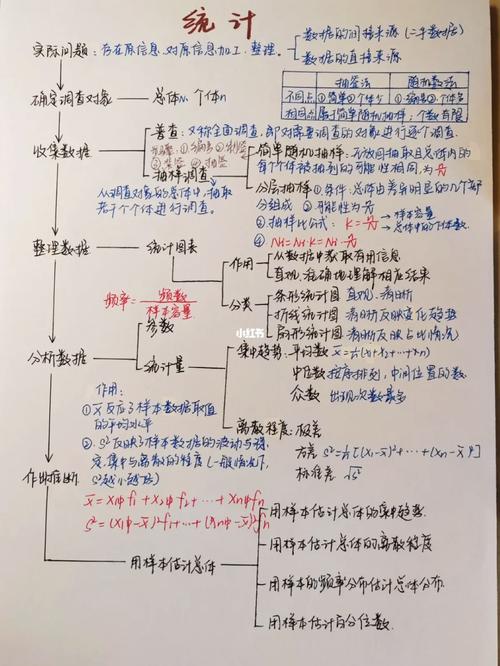 统计
实际问题：存在原信息.对原信息加工.整理。
数据的间接来源(二手数据)
数据的直接来源
抽签法 随机数法
不同点 ①简单②个体少 ①编号②个体多
相同点 属于简单随机抽样；个数有限
确定调查对象 总体N.个体n
收集数据
普查：又称全面调查.即对需要调查的对象进行逐个调查.
步骤：①编号②制签
③ ④抽签
抽样调查
从调查对象的总体中，抽取
若干个个体进行调查。
简单随机抽样：无放回抽取且总体内的
每个个体被抽到的可能性相同，为
分层抽样 ①条件：总体由差异明显的几个部
分组成 ②可能性为
③抽样比公式：K= n/N 样本容量
总体中的个体数
④
整理数据 统计图表
作用 从数据中获取有用信息
直观、准确地理解相应结果
分类 条形统计图 直观、清晰
折线统计图 清晰反映变化趋势
扇形统计图 清晰反映占比情况
频率= 频数/样本容量
分析数据
参数
统计量
集中趋势：平均数 x̄=1/n(x₁+x₂+…+xn)
中位数 按序排列，中间位置的数
众数 出现次数最多
离散程度：极差
方差 S²=1/n[(x₁-x̄)²+…+(xn-x̄)²]
标准差 √S²
作用：
①x̄反应了样本数据取值
的平均水平
②.S²反映了样本数据的波动与稳
定.集中与离散的程度(一般情况下，
S²越小越好)
作出推断
用样本估计总体
用样本估计总体的集中趋势.
用样本估计总体的离散程度
用样本的频率分布估计总体分布.
用样本估计百分位数.
小红书